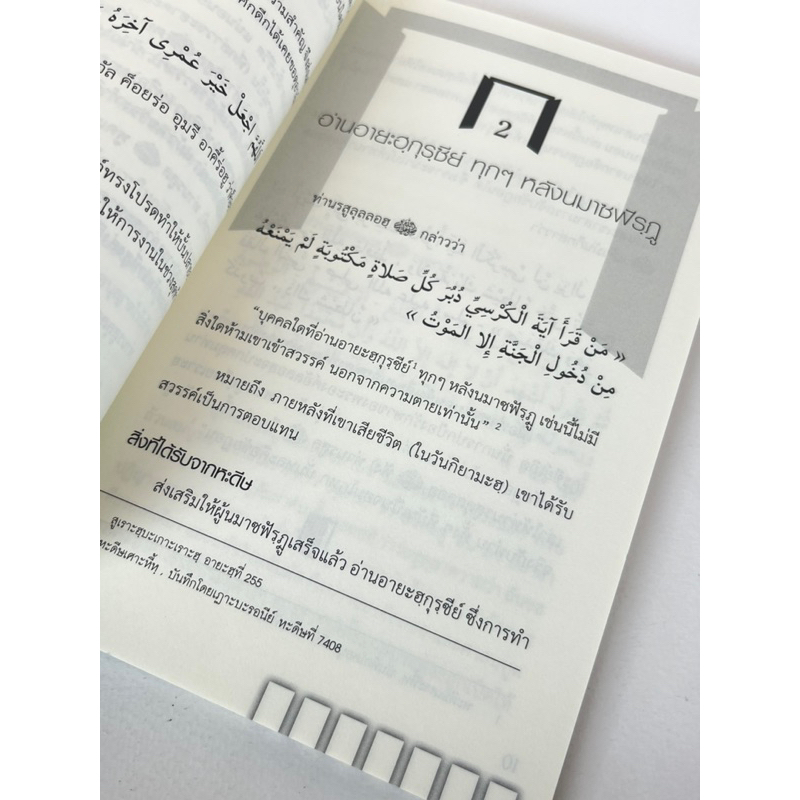 اجْعَلْ خَيْرَ عُمْرِي آخِرَهُ
ค็อยร่อ อุมรี อาคี้ร่อฮู
ร์ทรงโปรดทำให้บั้นปลาย
ให้การงานในช่วงสุดท้
2
อ่านอายะฮฺกุรฺซีย์ ทุกๆ หลังนมาซฟัรฺฎู
ท่านรสูลุลลอฮฺ ﷺ กล่าวว่า
« مَنْ قَرَأَ آيَةَ الْكُرْسِيِّ دُبُرَ كُلِّ صَلاَةٍ مَكْتُوبَةٍ لَمْ يَمْنَعْهُ
مِنْ دُخُولِ الْجَنَّةِ إِلا المَوْتُ »
“บุคคลใดที่อ่านอายะฮฺกุรฺซีย์¹ ทุกๆ หลังนมาซฟัรฺฎู เช่นนี้ไม่มี
สิ่งใดห้ามเขาเข้าสวรรค์ นอกจากความตายเท่านั้น” ²
หมายถึง ภายหลังที่เขาเสียชีวิต (ในวันกิยามะฮฺ) เขาได้รับ
สวรรค์เป็นการตอบแทน
สิ่งที่ได้รับจากหะดีษ
ส่งเสริมให้ผู้นมาซฟัรฺฎูเสร็จแล้ว อ่านอายะฮฺกุรฺซีย์ ซึ่งการทำ
สูเราะฮฺบะเกาะเราะฮฺ อายะฮฺที่ 255
หะดีษเศาะหี้หฺ, บันทึกโดยเฏาะบะรอนีย์ หะดีษที่ 7408